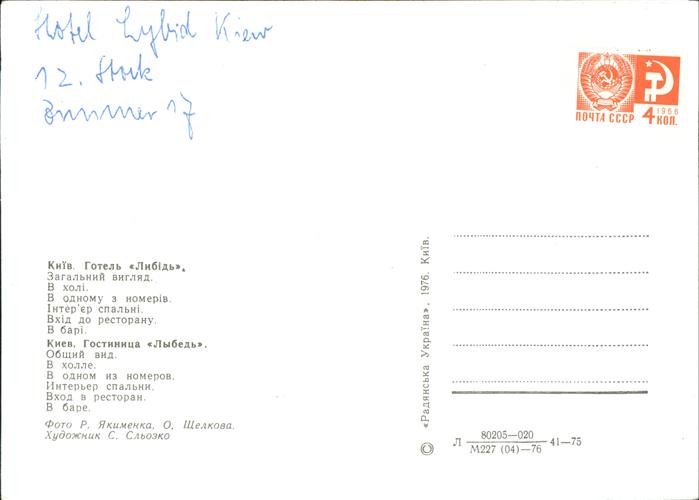 Hotel Lybid Kiew
12. Stock
Zimmer 17
ПОЧТА СССР
1966
4 КОП.
Київ. Готель «Либідь».
Загальний вигляд.
В холі.
В одному з номерів.
Інтер'єр спальні.
Вхід до ресторану.
В барі.
Киев. Гостиница «Лыбедь».
Общий вид.
В холле.
В одном из номеров.
Интерьер спальни.
Вход в ресторан.
В баре.
Фото Р. Якименка, О. Щелкова.
Художник С. Сльозко
© «Радянська Україна», 1976. Київ.
Л 80205—020 41—75
М227 (04)—76